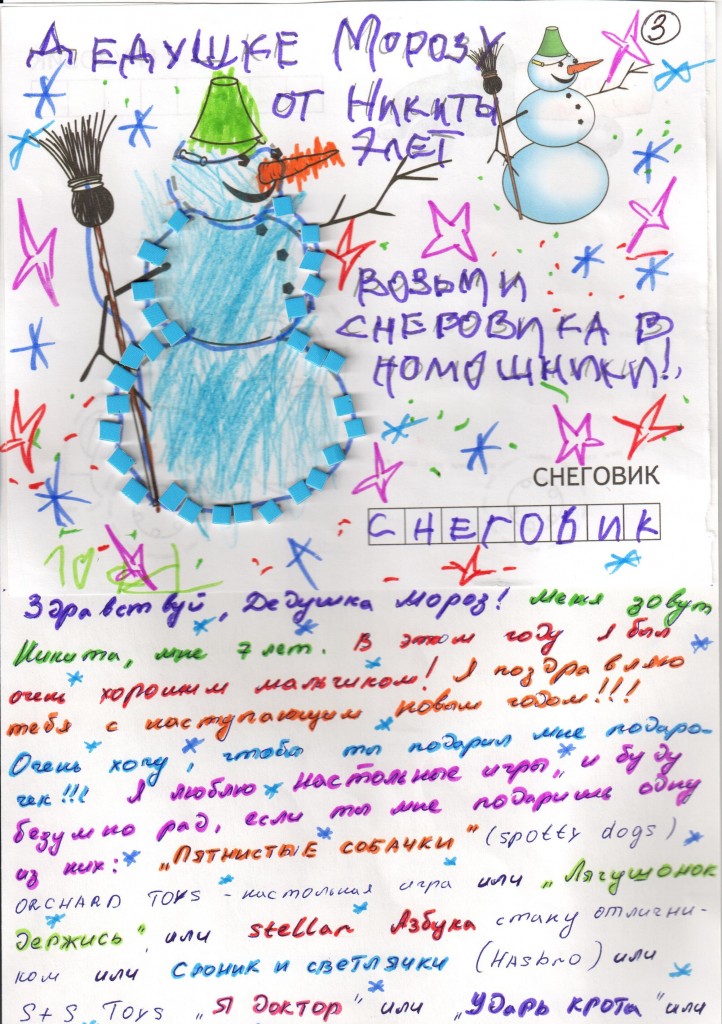 3
ДЕДУШКЕ МОРОЗУ
ОТ НИКИТЫ
7 ЛЕТ
ВОЗЬМИ
СНЕГОВИКА В
ПОМОШНИКИ!
СНЕГОВИК
СНЕГОВИК
Здравствуй, Дедушка Мороз! Меня зовут
Никита, мне 7 лет. В этом году я был
очень хорошим мальчиком! Я поздравляю
тебя с наступающим Новым годом!!!
Очень хочу, чтобы ты подарил мне подаро-
чек!!! Я люблю настольные игры„ и буду
безумно рад, если ты мне подаришь одну
из них: „ПЯТНИСТЫЕ СОБАЧКИ" (spotty dogs)
ORCHARD TOYS - настольная игра или „Лягушонок
держись", или stellar Азбука стану отлични-
ком или Слоник и светлячки (Hasbro) или
S+S Toys „Я доктор" или „Ударь крота" или